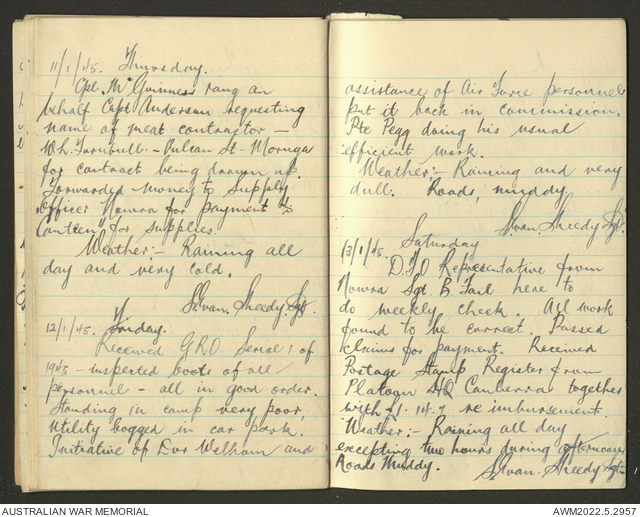 11/1/45. Thursday.
Cpl. McGuiness rang on
behalf Capt Anderson requesting
name of meat contractor –
W.h. Turnbull – Vulcan St – Moruya
for contract being drawn up.
Forwarded money to Supply
Officer Nowra for payment to
Canteen for supplies
Weather:– Raining all
day and very cold.
Sheedy Sgt
12/1/45. Friday.
Received GRO Serial 1 of
1945 – inspected boots of all
personnel – all in good order.
Standing in camp very poor,
Utility bogged in car park.
Initiative of Dvr Welham and
assistance of Air Force personnel
put it back in commission.
Pte Pegg doing his usual
efficient work.
Weather:– Raining and very
dull. Roads, muddy.
Sheedy Sgt.
13/1/45. Saturday
Representative from
Nowra Sgt B. Tail here to
do weekly check. All work
found to be correct. Passed
claims for payment. Received
Postage Stamp Register from
Platoon HQ Canberra together
with £1-14.7 re imbursement.
Weather:– Raining all day
excepting two hours during afternoon
Roads Muddy.
Sheedy Sgt.
AUSTRALIAN WAR MEMORIAL
AWM2022.5.2957